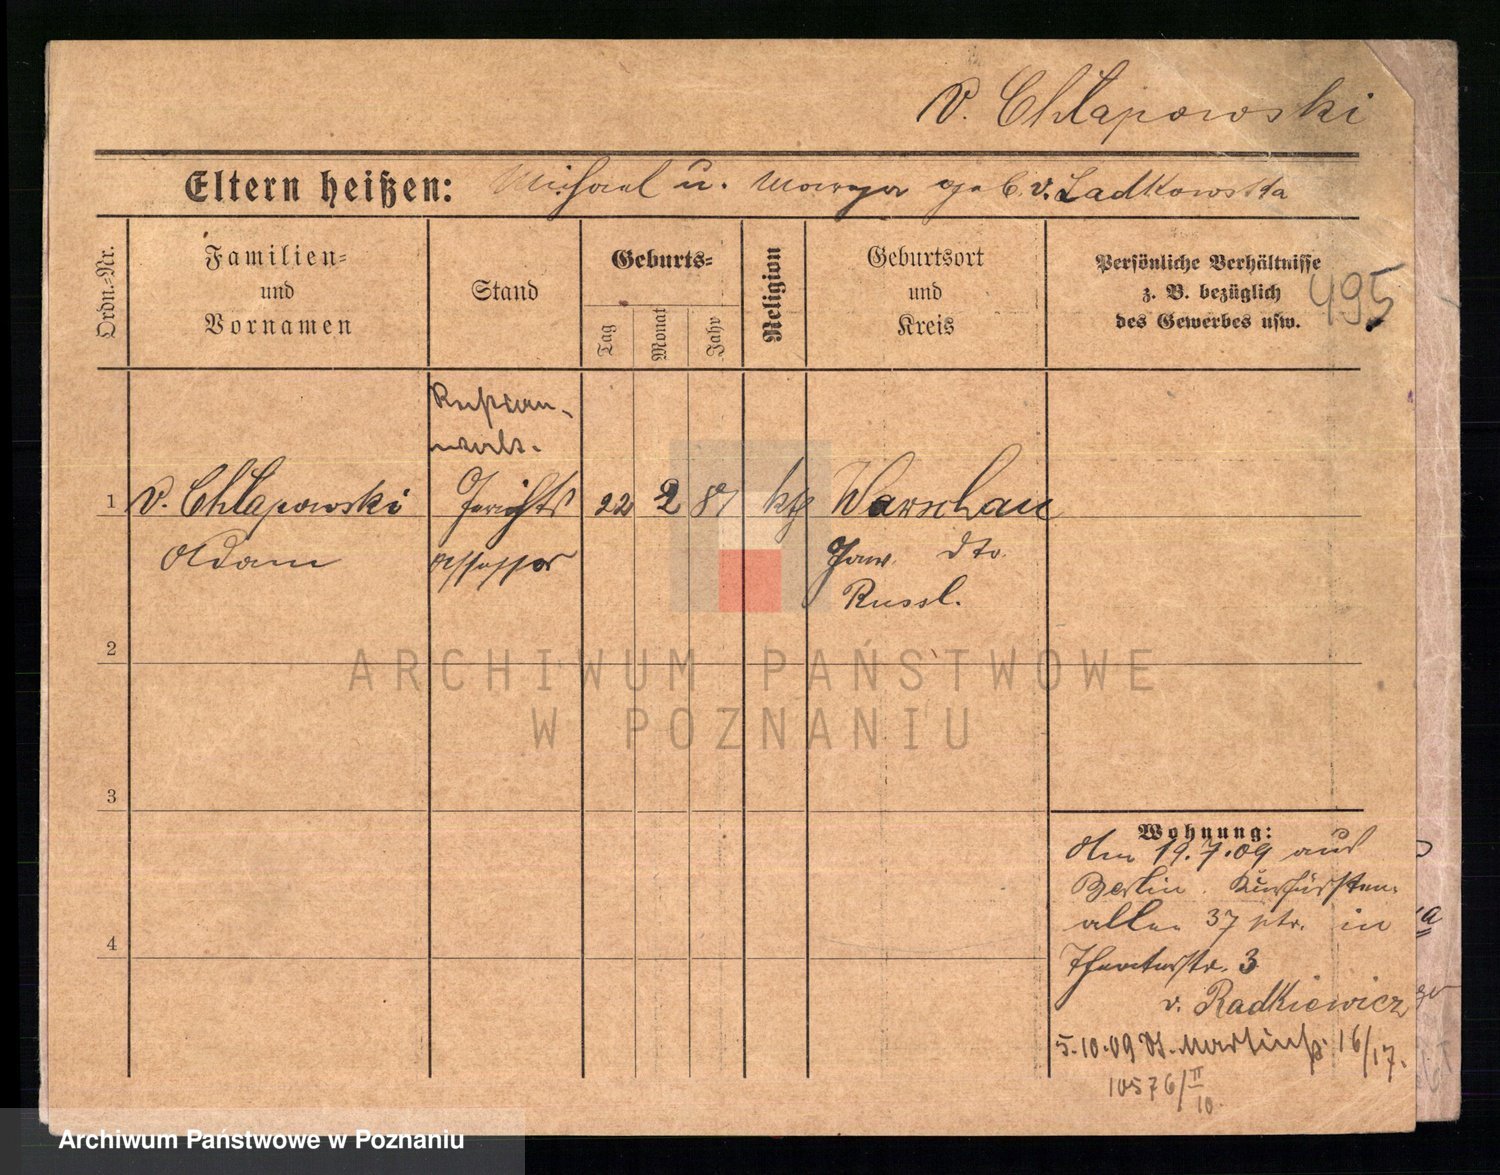 v. Chłapowski
Eltern heißen: Michael u. Marya geb. v. Ladkowska
Ordn.-Nr.
Familien-
und
Vornamen
Stand
Geburts-
Tag
Monat
Jahr
Religion
Geburtsort
und
Kreis
Persönliche Verhältnisse
z. B. bezüglich
des Gewerbes usw.
495
1
v. Chłapowski
Adam
Rechtsan-
walt.
Gerichts
assessor
22
2
81
kth
Warschau
dto.
Russl.
2
3
4
Wohnung:
Am 19.7.09 aus
Berlin. Kurfürsten-
allee 37 ptr. in
Theaterstr. 3
v. Radkiewicz
5.10.09 St. Martinstr. 16/17.
10576/II
10.
ARCHIWUM PAŃSTWOWE
W POZNANIU
Archiwum Państwowe w Poznaniu